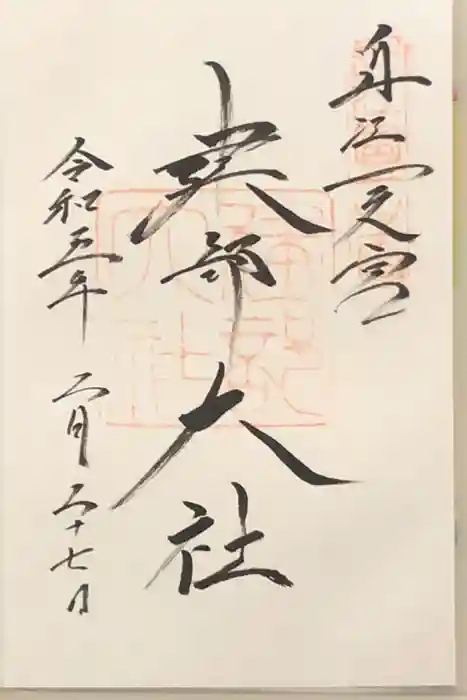 近江一之宮
建部大社
令和五年 二月二十七日
建部大社